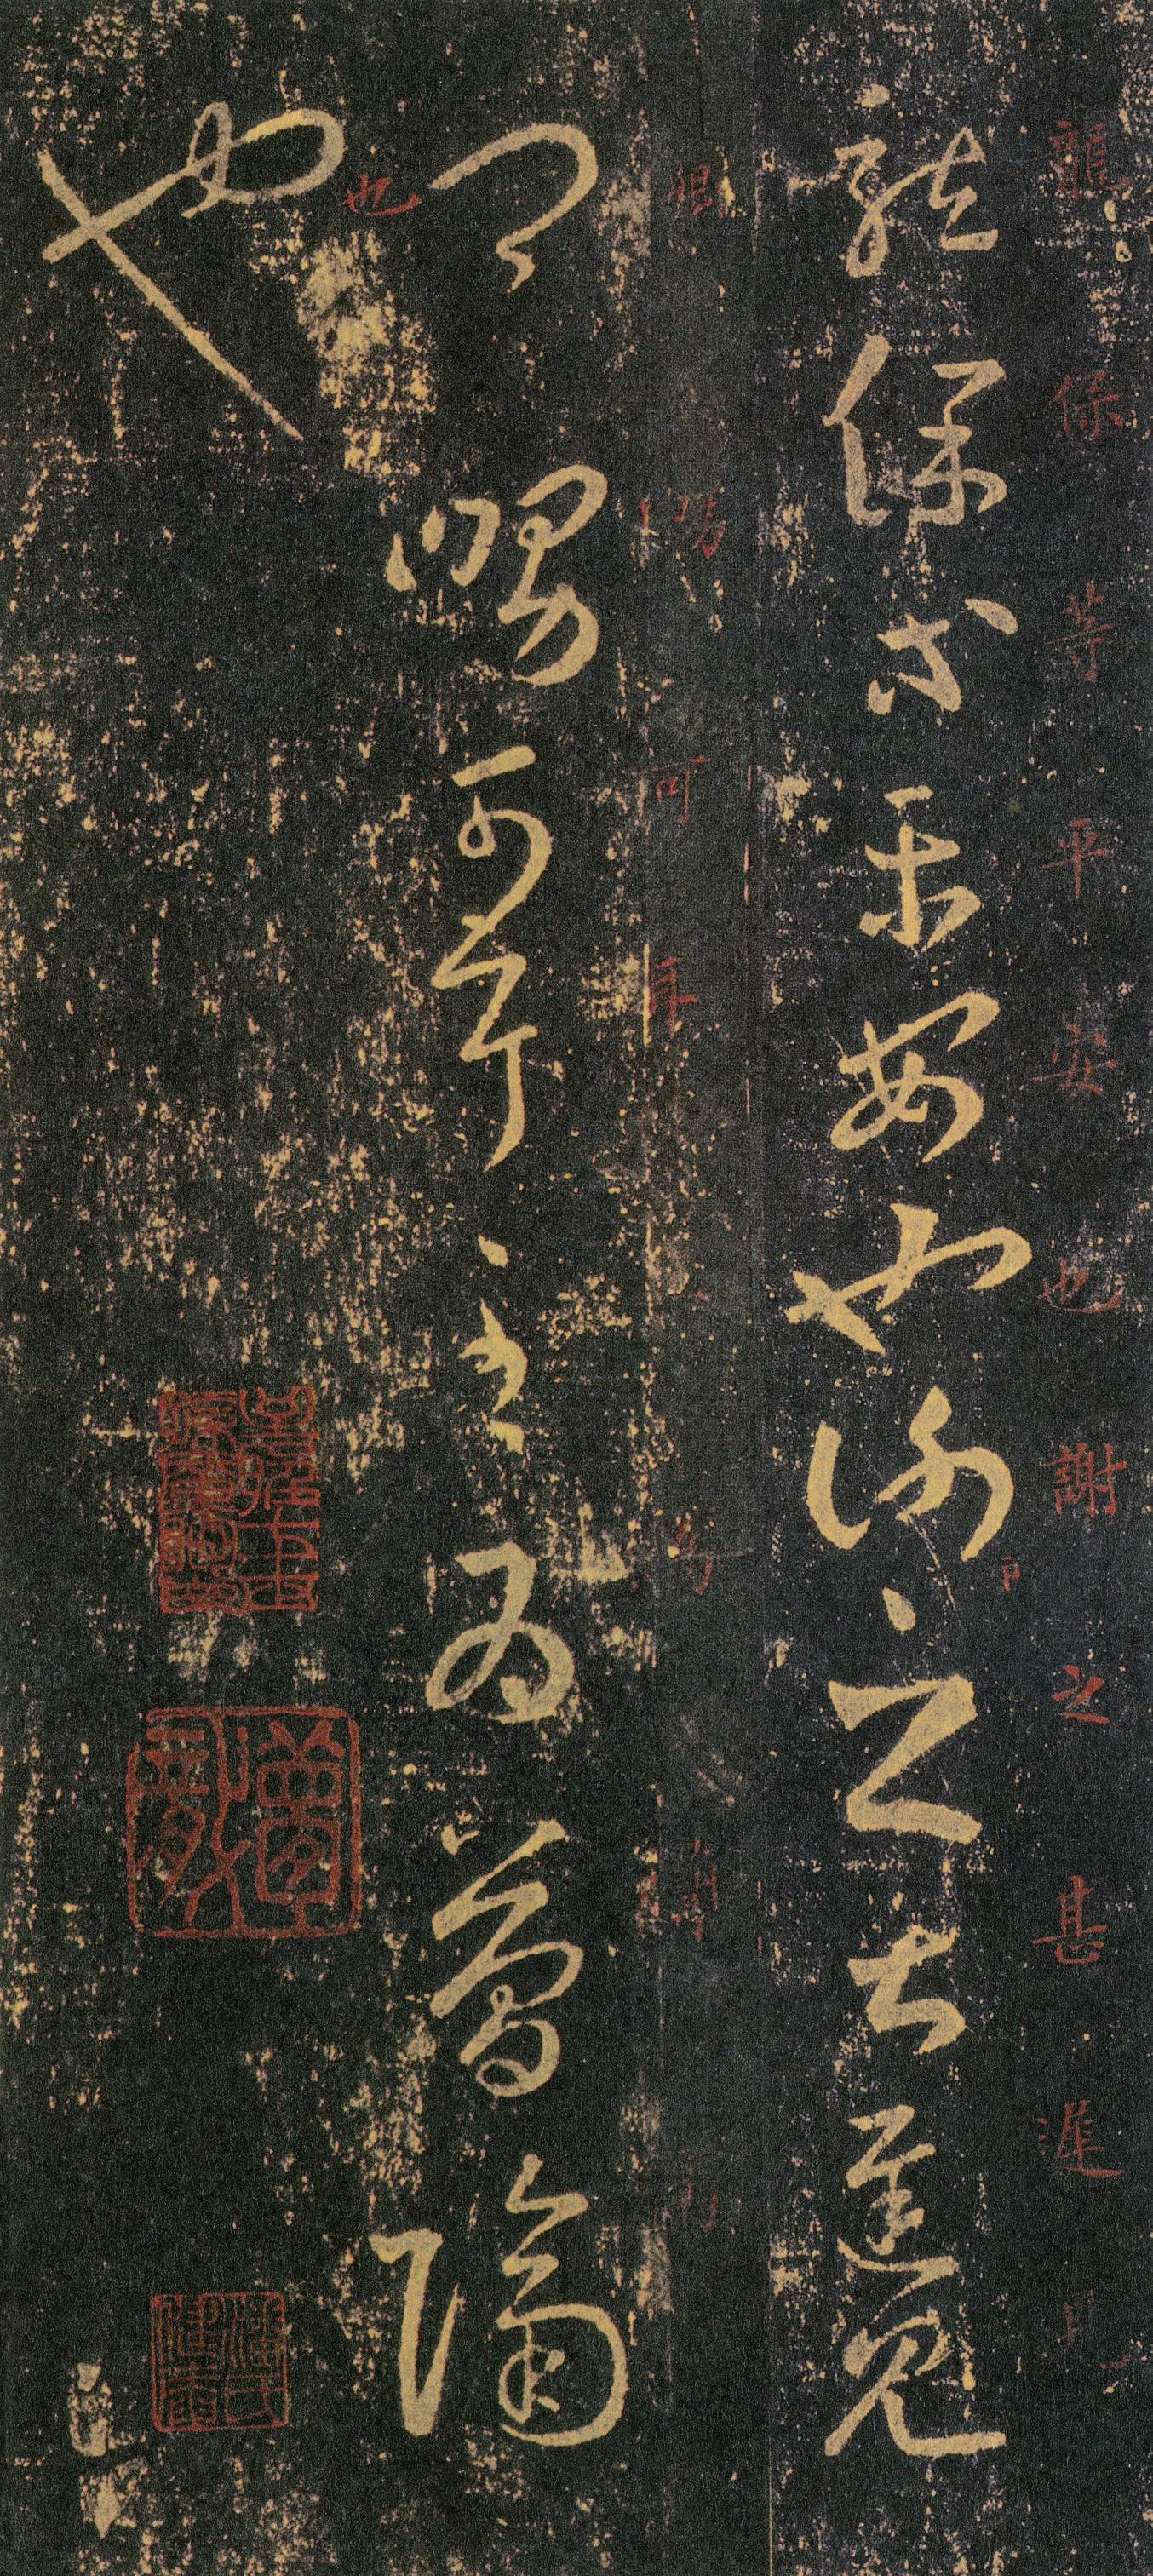 龍保等平安也謝之甚遲
龍保等平安也謝之甚遲見
可耳為
卿舅可耳至為簡隔
也
也